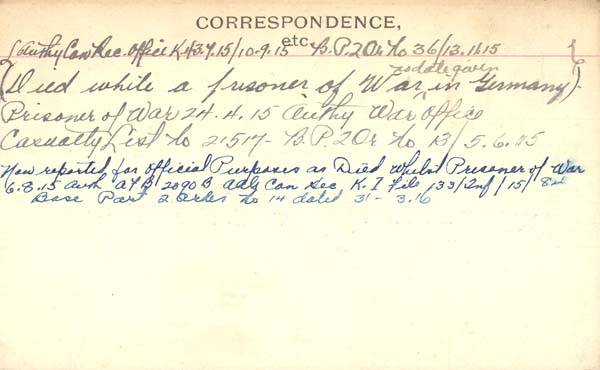 CORRESPONDENCE,
etc
(Authy Can Rec. Office K.43.9.15/10-9.15 B.P.2 Or. No 36/13.11.15
no date given
(Died while a prisoner of War in Germany).
Prisoner of War 24.4.15 Authy War Office
Casualty List No 21517- B.P.2 Or No 13/5.6.15
Now reported for official Purposes as Died Whilst Prisoner of War
6.8.15 Auth A.F.B 2090 B AAG Can Rec K.I File 133/Inf/15/84
Base Part 2 Orders No 14 dated 31-3.16